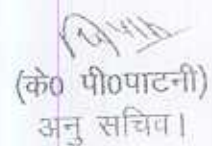 (के0 पी0पाटनी)
अनु सचिव।